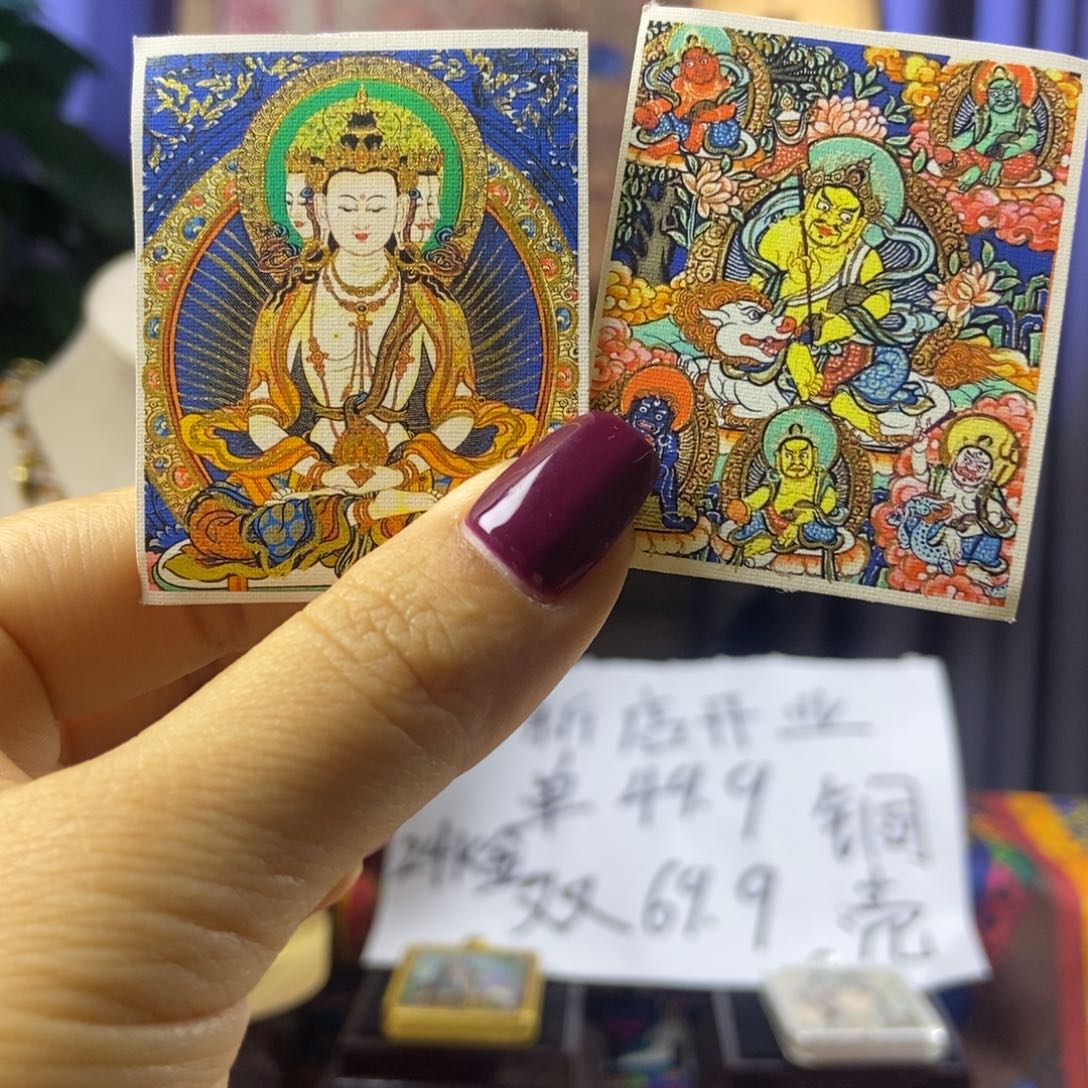 新店开业
单 49.9
24K金
双 69.9
铜壳